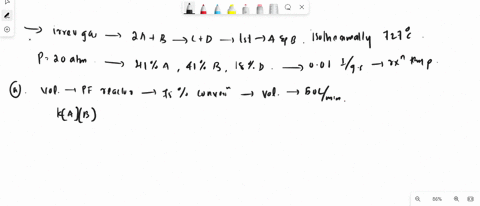 → irrev gas → 2A + B → C + D → 1st → A & B. Isothermally 727°C.
P = 20 atm → 41% A, 41% B, 18% D. → 0.01 → rxn
(a) Vol. → PF reactor → 75% conversn → vol. → 50L/min.
k[A][B]
86%